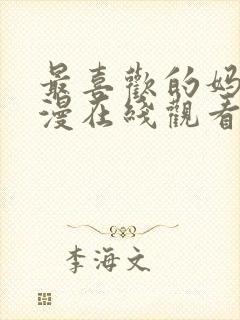 最喜歡的妈
漫在綫觀看
李海文